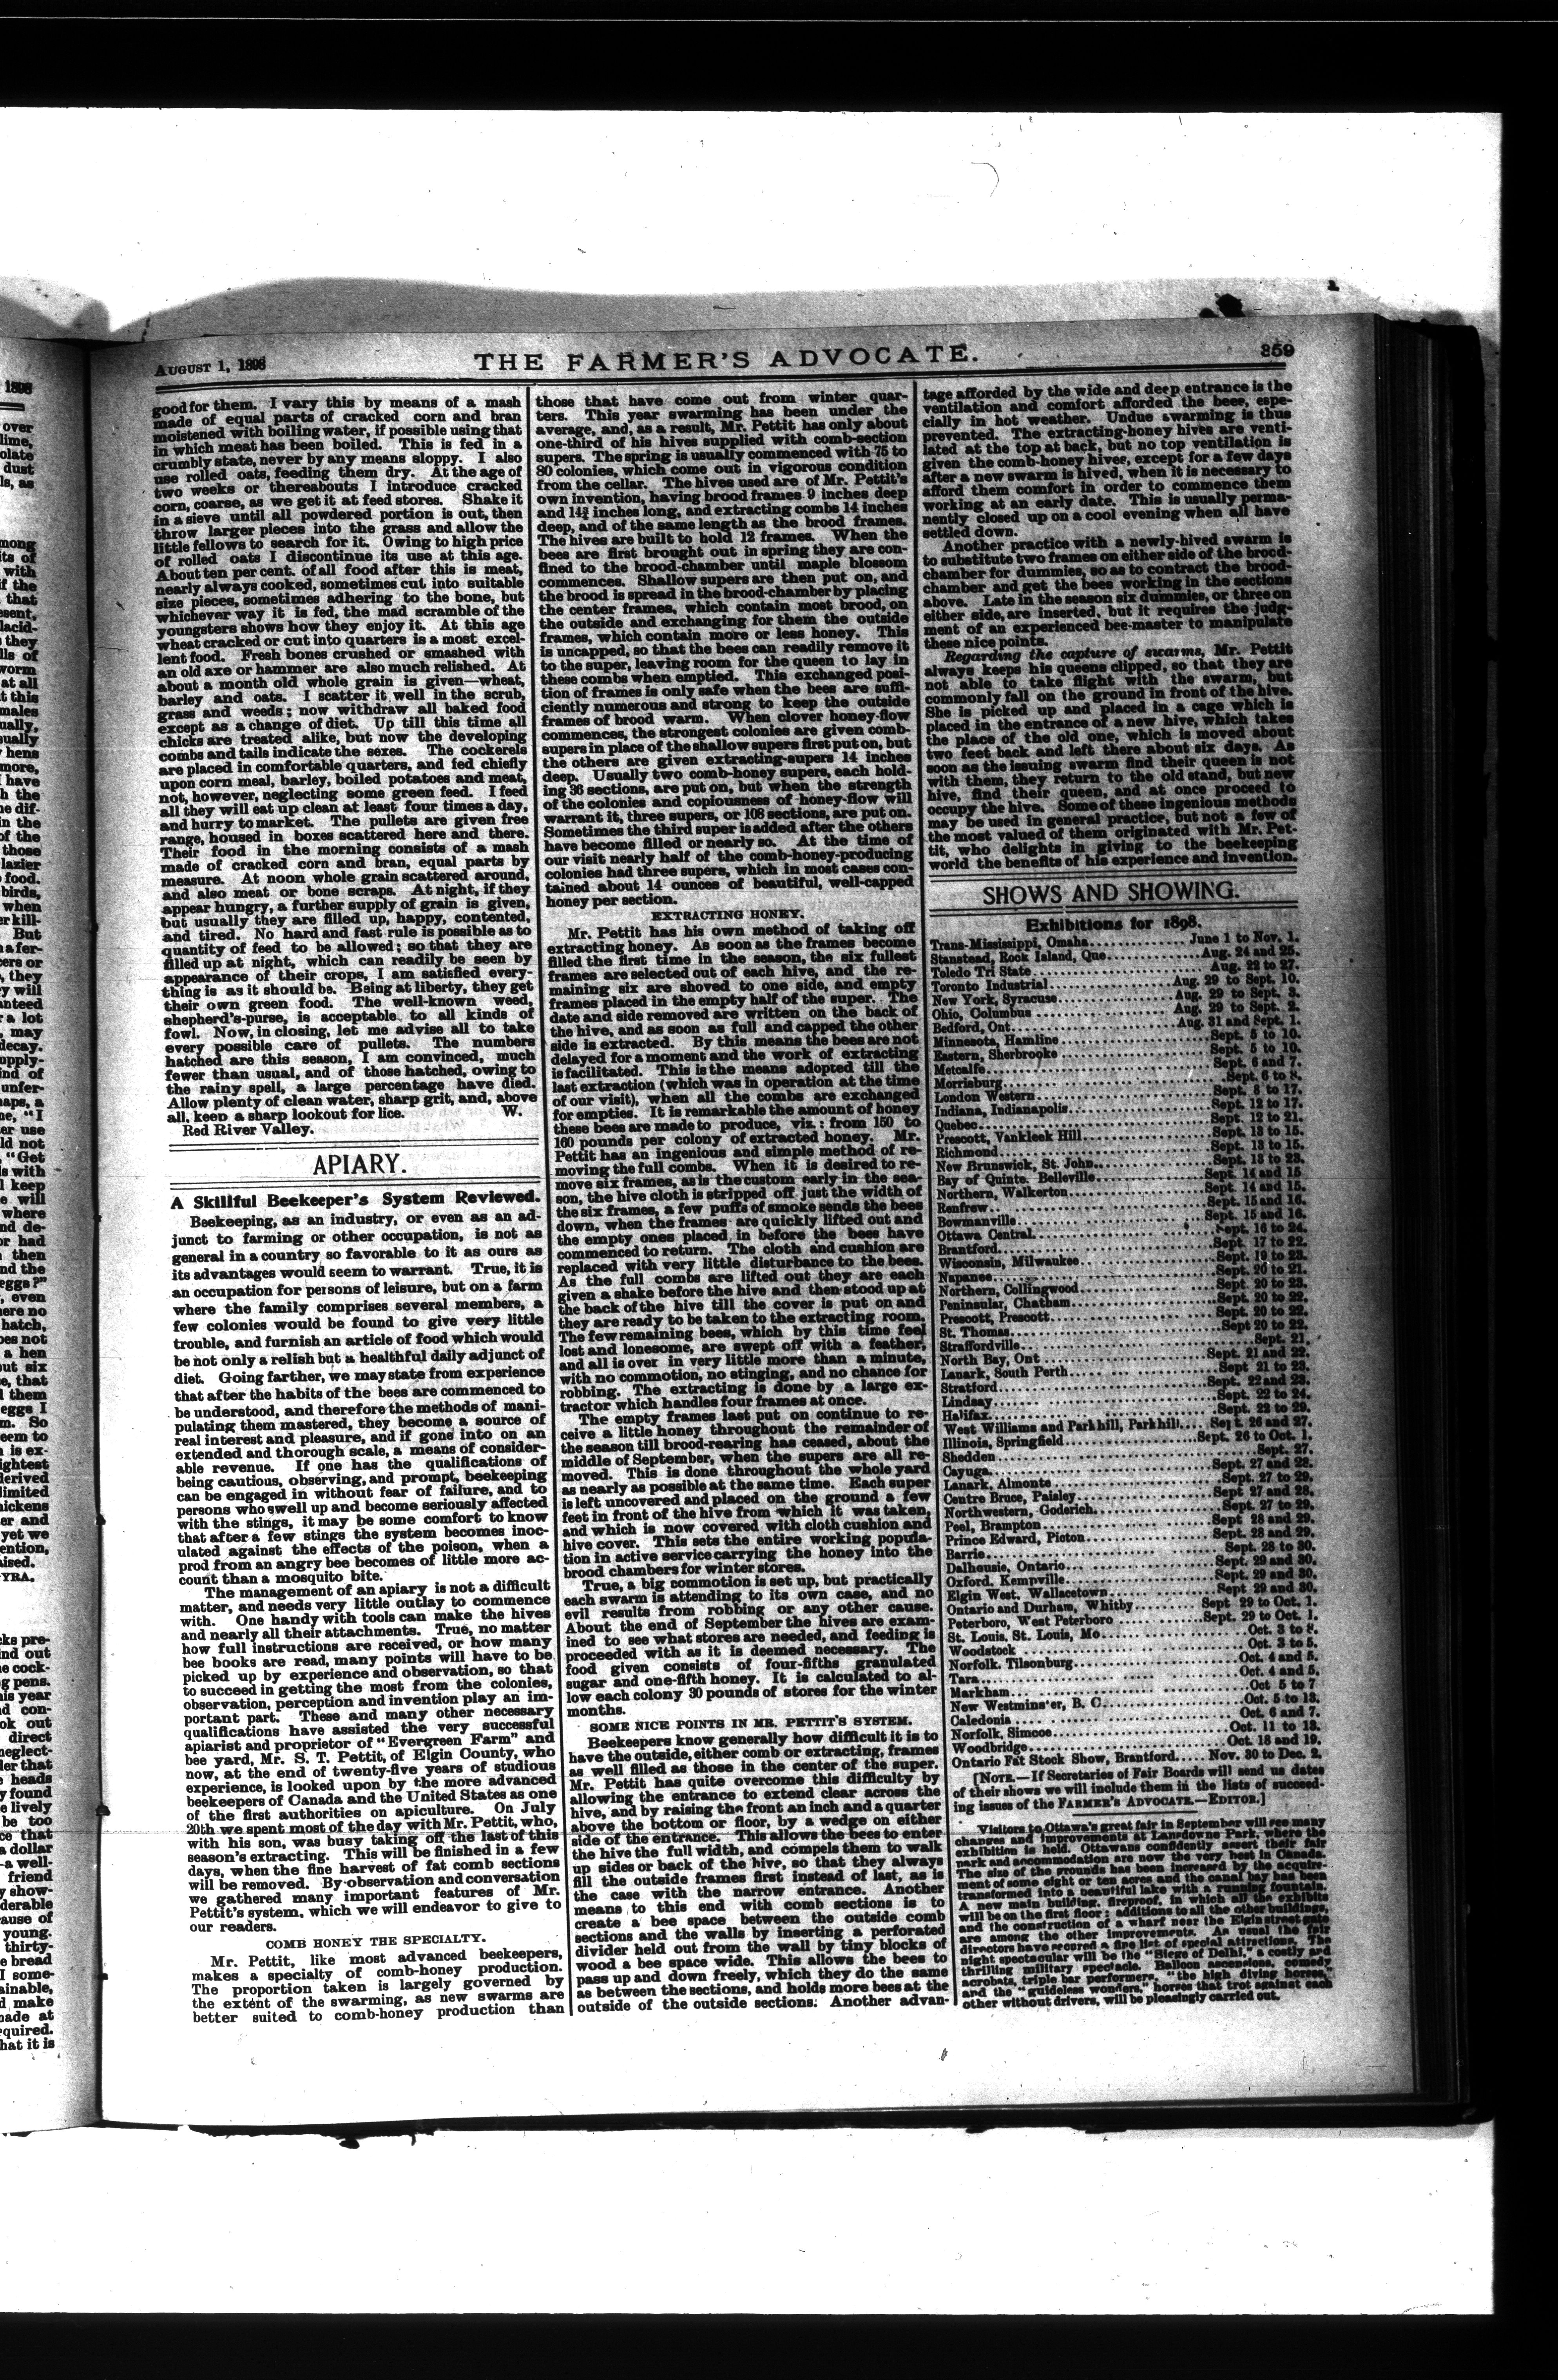 AUGUST 1, 1898
THE FARMER'S ADVOCATE.
359
good for them. I vary this by means of a mash
made of equal parts of cracked corn and bran
moistened with boiling water, if possible using that
in which meat has been boiled. This is fed in a
crumbly state, never by any means sloppy. I also
use rolled oats, feeding them dry. At the age of
two weeks or thereabouts I introduce cracked
corn, coarse, as we get it at feed stores. Shake it
in a sieve until all powdered portion is out, then
throw larger pieces into the grass and allow the
little fellows to search for it. Owing to high price
of rolled oats I discontinue its use at this age.
About ten per cent. of all food after this is meat,
nearly always cooked, sometimes cut into suitable
size pieces, sometimes adhering to the bone, but
whichever way it is fed, the mad scramble of the
youngsters shows how they enjoy it. At this age
wheat cracked or cut into quarters is a most excel-
lent food. Fresh bones crushed or smashed with
an old axe or hammer are also much relished. At
about a month old whole grain is given—wheat,
barley and oats. I scatter it well in the scrub,
grass and weeds; now withdraw all baked food
except as a change of diet. Up till this time all
chicks are treated alike, but now the developing
combs and tails indicate the sexes. The cockerels
are placed in comfortable quarters, and fed chiefly
upon corn meal, barley, boiled potatoes and meat,
not, however, neglecting some green feed. I feed
all they will eat up clean at least four times a day,
and hurry to market. The pullets are given free
range, housed in boxes scattered here and there.
Their food in the morning consists of a mash
made of cracked corn and bran, equal parts by
measure. At noon whole grain scattered around,
and also meat or bone scraps. At night, if they
appear hungry, a further supply of grain is given,
but usually they are filled up, happy, contented,
and tired. No hard and fast rule is possible as to
quantity of feed to be allowed; so that they are
filled up at night, which can readily be seen by
appearance of their crops, I am satisfied every-
thing is as it should be. Being at liberty, they get
their own green food. The well-known weed,
shepherd's-purse, is acceptable to all kinds of
fowl. Now, in closing, let me advise all to take
every possible care of pullets. The numbers
hatched are this season, I am convinced, much
fewer than usual, and of those hatched, owing to
the rainy spell, a large percentage have died.
Allow plenty of clean water, sharp grit, and, above
all, keep a sharp lookout for lice. W.
Red River Valley.
APIARY.
A Skillful Beekeeper's System Reviewed.
Beekeeping, as an industry, or even as an ad-
junct to farming or other occupation, is not as
general in a country so favorable to it as ours as
its advantages would seem to warrant. True, it is
an occupation for persons of leisure, but on a farm
where the family comprises several members, a
few colonies would be found to give very little
trouble, and furnish an article of food which would
be not only a relish but a healthful daily adjunct of
diet. Going farther, we may state from experience
that after the habits of the bees are commenced to
be understood, and therefore the methods of mani-
pulating them mastered, they become a source of
real interest and pleasure, and if gone into on an
extended and thorough scale, a means of consider-
able revenue. If one has the qualifications of
being cautious, observing, and prompt, beekeeping
can be engaged in without fear of failure, and to
persons who swell up and become seriously affected
with the stings, it may be some comfort to know
that after a few stings the system becomes inoc-
ulated against the effects of the poison, when a
prod from an angry bee becomes of little more ac-
count than a mosquito bite.
The management of an apiary is not a difficult
matter, and needs very little outlay to commence
with. One handy with tools can make the hives
and nearly all their attachments. True, no matter
how full instructions are received, or how many
bee books are read, many points will have to be
picked up by experience and observation, so that
to succeed in getting the most from the colonies,
observation, perception and invention play an im-
portant part. These and many other necessary
qualifications have assisted the very successful
apiarist and proprietor of "Evergreen Farm" and
bee yard, Mr. S. T. Pettit, of Elgin County, who
now, at the end of twenty-five years of studious
experience, is looked upon by the more advanced
beekeepers of Canada and the United States as one
of the first authorities on apiculture. On July
20th we spent most of the day with Mr. Pettit, who,
with his son, was busy taking off the last of this
season's extracting. This will be finished in a few
days, when the fine harvest of fat comb sections
will be removed. By observation and conversation
we gathered many important features of Mr.
Pettit's system, which we will endeavor to give to
our readers.
COMB HONEY THE SPECIALTY.
Mr. Pettit, like most advanced beekeepers,
makes a specialty of comb-honey production.
The proportion taken is largely governed by
the extent of the swarming, as new swarms are
better suited to comb-honey production than
those that have come out from winter quar-
ters. This year swarming has been under the
average, and, as a result, Mr. Pettit has only about
one-third of his hives supplied with comb-section
supers. The spring is usually commenced with 75 to
80 colonies, which come out in vigorous condition
from the cellar. The hives used are of Mr. Pettit's
own invention, having brood frames 9 inches deep
and 14¾ inches long, and extracting combs 14 inches
deep, and of the same length as the brood frames.
The hives are built to hold 12 frames. When the
bees are first brought out in spring they are con-
fined to the brood-chamber until maple blossom
commences. Shallow supers are then put on, and
the brood is spread in the brood-chamber by placing
the center frames, which contain most brood, on
the outside and exchanging for them the outside
frames, which contain more or less honey. This
is uncapped, so that the bees can readily remove it
to the super, leaving room for the queen to lay in
these combs when emptied. This exchanged posi-
tion of frames is only safe when the bees are suffi-
ciently numerous and strong to keep the outside
frames of brood warm. When clover honey-flow
commences, the strongest colonies are given comb-
supers in place of the shallow supers first put on, but
the others are given extracting-supers 14 inches
deep. Usually two comb-honey supers, each hold-
ing 36 sections, are put on, but when the strength
of the colonies and copiousness of honey-flow will
warrant it, three supers, or 108 sections, are put on.
Sometimes the third super is added after the others
have become filled or nearly so. At the time of
our visit nearly half of the comb-honey-producing
colonies had three supers, which in most cases con-
tained about 14 ounces of beautiful, well-capped
honey per section.
EXTRACTING HONEY.
Mr. Pettit has his own method of taking off
extracting honey. As soon as the frames become
filled the first time in the season, the six fullest
frames are selected out of each hive, and the re-
maining six are shoved to one side, and empty
frames placed in the empty half of the super. The
date and side removed are written on the back of
the hive, and as soon as full and capped the other
side is extracted. By this means the bees are not
delayed for a moment and the work of extracting
is facilitated. This is the means adopted till the
last extraction (which was in operation at the time
of our visit), when all the combs are exchanged
for empties. It is remarkable the amount of honey
these bees are made to produce, viz.: from 150 to
160 pounds per colony of extracted honey. Mr.
Pettit has an ingenious and simple method of re-
moving the full combs. When it is desired to re-
move six frames, as is the custom early in the sea-
son, the hive cloth is stripped off just the width of
the six frames, a few puffs of smoke sends the bees
down, when the frames are quickly lifted out and
the empty ones placed in before the bees have
commenced to return. The cloth and cushion are
replaced with very little disturbance to the bees.
As the full combs are lifted out they are each
given a shake before the hive and then stood up at
the back of the hive till the cover is put on and
they are ready to be taken to the extracting room.
The few remaining bees, which by this time feel
lost and lonesome, are swept off with a feather,
and all is over in very little more than a minute,
with no commotion, no stinging, and no chance for
robbing. The extracting is done by a large ex-
tractor which handles four frames at once.
The empty frames last put on continue to re-
ceive a little honey throughout the remainder of
the season till brood-rearing has ceased, about the
middle of September, when the supers are all re-
moved. This is done throughout the whole yard
as nearly as possible at the same time. Each super
is left uncovered and placed on the ground a few
feet in front of the hive from which it was taken,
and which is now covered with cloth cushion and
hive cover. This sets the entire working popula-
tion in active service carrying the honey into the
brood chambers for winter stores.
True, a big commotion is set up, but practically
each swarm is attending to its own case, and no
evil results from robbing or any other cause.
About the end of September the hives are exam-
ined to see what stores are needed, and feeding is
proceeded with as it is deemed necessary. The
food given consists of four-fifths granulated
sugar and one-fifth honey. It is calculated to al-
low each colony 30 pounds of stores for the winter
months.
SOME NICE POINTS IN MR. PETTIT'S SYSTEM.
Beekeepers know generally how difficult it is to
have the outside, either comb or extracting, frames
as well filled as those in the center of the super.
Mr. Pettit has quite overcome this difficulty by
allowing the entrance to extend clear across the
hive, and by raising the front an inch and a quarter
above the bottom or floor, by a wedge on either
side of the entrance. This allows the bees to enter
the hive the full width, and compels them to walk
up sides or back of the hive, so that they always
fill the outside frames first instead of last, as is
the case with the narrow entrance. Another
means to this end with comb sections is to
create a bee space between the outside comb
sections and the walls by inserting a perforated
divider held out from the wall by tiny blocks of
wood a bee space wide. This allows the bees to
pass up and down freely, which they do the same
as between the sections, and holds more bees at the
outside of the outside sections. Another advan-
tage afforded by the wide and deep entrance is the
ventilation and comfort afforded the bees, espe-
cially in hot weather. Undue swarming is thus
prevented. The extracting-honey hives are venti-
lated at the top at back, but no top ventilation is
given the comb-honey hives, except for a few days
after a new swarm is hived, when it is necessary to
afford them comfort in order to commence them
working at an early date. This is usually perma-
nently closed up on a cool evening when all have
settled down.
Another practice with a newly-hived swarm is
to substitute two frames on either side of the brood-
chamber for dummies, so as to contract the brood-
chamber and get the bees working in the sections
above. Late in the season six dummies, or three on
either side, are inserted, but it requires the judg-
ment of an experienced bee-master to manipulate
these nice points.
Regarding the capture of swarms, Mr. Pettit
always keeps his queens clipped, so that they are
not able to take flight with the swarm, but
commonly fall on the ground in front of the hive.
She is picked up and placed in a cage which is
placed in the entrance of a new hive, which takes
the place of the old one, which is moved about
two feet back and left there about six days. As
soon as the issuing swarm find their queen is not
with them, they return to the old stand, but new
hive, find their queen, and at once proceed to
occupy the hive. Some of these ingenious methods
may be used in general practice, but not a few of
the most valued of them originated with Mr. Pet-
tit, who delights in giving to the beekeeping
world the benefits of his experience and invention.
SHOWS AND SHOWING.
Exhibitions for 1898.
Trans-Mississippi, Omaha June 1 to Nov. 1.
Stanstead, Rock Island, Que Aug. 24 and 25.
Toledo Tri State Aug. 22 to 27.
Toronto Industrial Aug. 29 to Sept. 10.
New York, Syracuse Aug. 29 to Sept. 3.
Ohio, Columbus Aug. 29 to Sept. 2.
Bedford, Ont. Aug. 31 and Sept. 1.
Minnesota, Hamline Sept. 5 to 10.
Eastern, Sherbrooke Sept. 5 to 10.
Metcalfe Sept. 6 and 7.
Morrisburg Sept. 6 to 8.
London Western Sept. 8 to 17.
Indiana, Indianapolis Sept. 12 to 17.
Quebec Sept. 12 to 21.
Prescott, Vankleek Hill Sept. 13 to 15.
Richmond Sept. 13 to 15.
New Brunswick, St. John Sept. 13 to 23.
Bay of Quinte, Belleville Sept. 14 and 15
Northern, Walkerton Sept. 14 and 15.
Renfrew Sept. 15 and 16.
Bowmanville Sept. 15 and 16.
Ottawa Central Sept. 16 to 24.
Brantford Sept. 17 to 22.
Wisconsin, Milwaukee Sept. 19 to 23.
Napanee Sept. 20 to 21.
Northern, Collingwood Sept. 20 to 23.
Peninsular, Chatham Sept. 20 to 22.
Prescott, Prescott Sept. 20 to 22.
St. Thomas Sept 20 to 22.
Straffordville Sept. 21.
North Bay, Ont Sept. 21 and 22.
Lanark, South Perth Sept 21 to 23.
Stratford Sept. 22 and 23.
Lindsay Sept. 22 to 24.
Halifax Sept. 22 to 29.
West Williams and Parkhill, Parkhill Sept. 26 and 27.
Illinois, Springfield Sept. 26 to Oct. 1.
Shedden Sept. 27.
Cayuga Sept. 27 and 28.
Lanark, Almonte Sept. 27 to 29.
Centre Bruce, Paisley Sept 27 and 28.
Northwestern, Goderich Sept. 27 to 29.
Peel, Brampton Sept 28 and 29.
Prince Edward, Picton Sept. 28 and 29.
Barrie Sept. 28 to 30.
Dalhousie, Ontario Sept. 29 and 30.
Oxford, Kempville Sept. 29 and 30.
Elgin West, Wallacetown Sept 29 and 30.
Ontario and Durham, Whitby Sept 29 to Oct. 1.
Peterboro, West Peterboro Sept. 29 to Oct. 1.
St. Louis, St. Louis, Mo Oct. 3 to 8.
Woodstock Oct. 3 to 5.
Norfolk, Tilsonburg Oct. 4 and 5.
Tara Oct. 4 and 5.
Markham Oct 5 to 7
New Westminster, B. C. Oct. 5 to 13.
Caledonia Oct. 6 and 7.
Norfolk, Simcoe Oct. 11 to 13.
Woodbridge Oct. 18 and 19.
Ontario Fat Stock Show, Brantford Nov. 30 to Dec. 2.
[NOTE.—If Secretaries of Fair Boards will send us dates
of their shows we will include them in the lists of succeed-
ing issues of the FARMER'S ADVOCATE.—EDITOR.]
Visitors to Ottawa's great fair in September will see many
changes and improvements at Lansdowne Park, where the
exhibition is held. Ottawans confidently assert their fair
park and accommodation are now the very best in Canada.
The size of the grounds has been increased by the acquire-
ment of some eight or ten acres and the canal bay has been
transformed into a beautiful lake with a running fountain.
A new main building, fireproof, in which all the exhibits
will be on the first floor; additions to all the other buildings,
and the construction of a wharf near the Elgin street gate
are among the other improvements. As usual the fair
directors have secured a fine list of special attractions. The
night spectacular will be the "Siege of Delhi," a costly and
thrilling military spectacle. Balloon ascensions, comedy
acrobats, triple bar performers, "the high diving horses,"
and the "guideless wonders," horses that trot against each
other without drivers, will be pleasingly carried out.